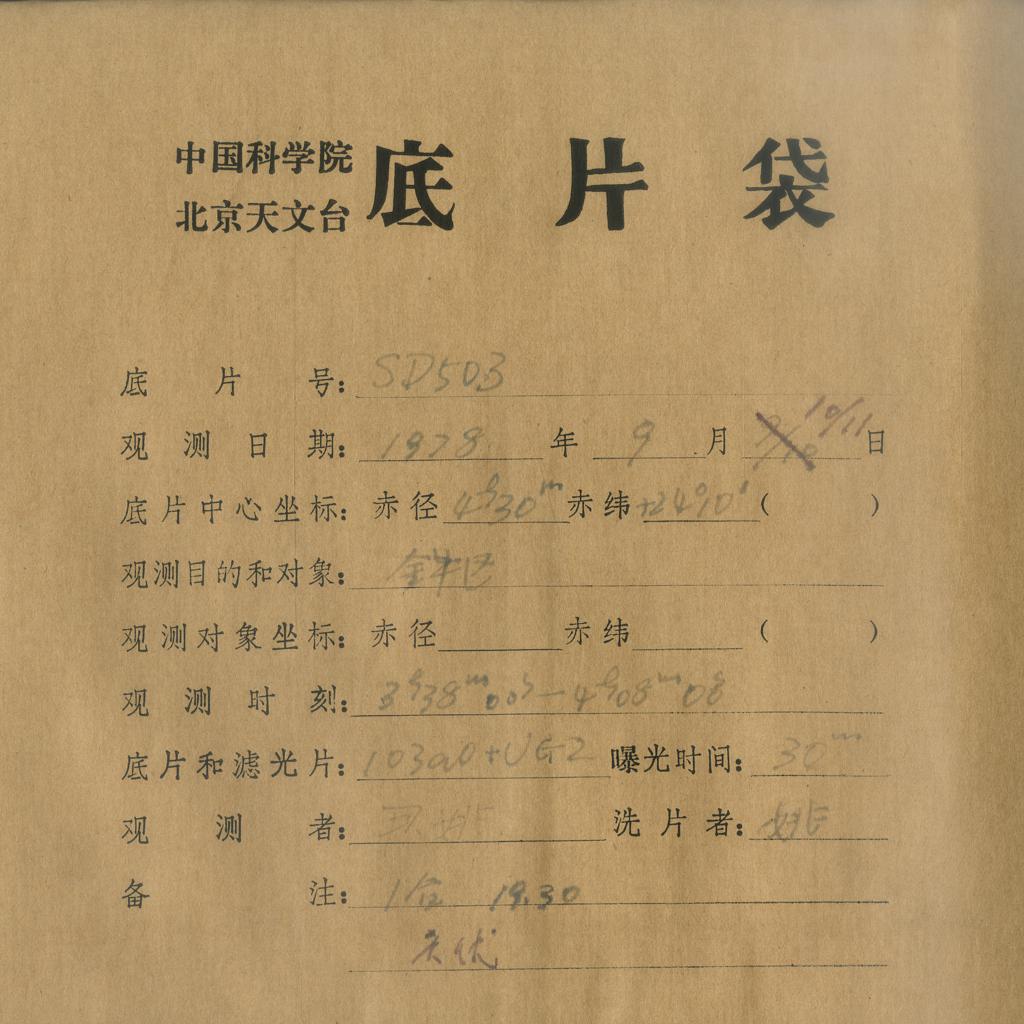 中国科学院
北京天文台
底片袋
底片号: SD503
观测日期: 1978 年 9 月 10/11 日
底片中心坐标: 赤径 4h30m 赤纬 +24°10' ( )
观测目的和对象: 金牛区
观测对象坐标: 赤径 赤纬 ( )
观测时刻: 3h38m00s—4h08m08
底片和滤光片: 103aO+UG2 曝光时间: 30m
观测者: 洗片者: 姚
备注: 1合 19.30